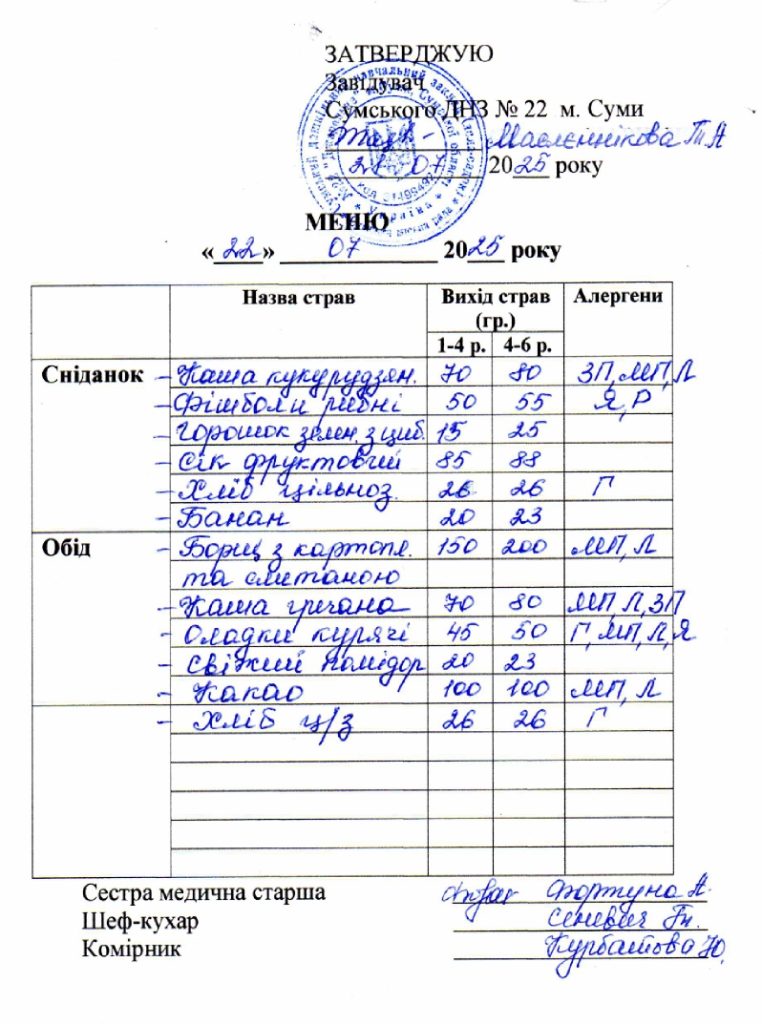 ЗАТВЕРДЖУЮ
Завідувач
Сумського ДНЗ № 22 м. Суми
Маслєннікова Т А
21 07 2025 року
МЕНЮ
«22» 07 2025 року
Назва страв Вихід страв (гр.) Алергени
1-4 р. 4-6 р.
Сніданок – Каша кукурудзян. 70 80 ЗП, МП, Л
– Фішболи рибні 50 55 Я, Р
– Горошок зелен. з циб. 15 25
– Сік фруктовий 85 88
– Хліб цільноз. 26 26 Г
– Банан 20 23
Обід – Борщ з картопл. 150 200 МП, Л
та сметаною
– Каша гречана 70 80 МП, Л, ЗП
– Оладки курячі 45 50 Г, МП, Л, Я
– Свіжий помідор 20 23
– Какао 100 100 МП, Л
– Хліб ц/з 26 26 Г
Сестра медична старша Фортуна А.
Шеф-кухар Сеневич Гн.
Комірник Курбатова Ю.